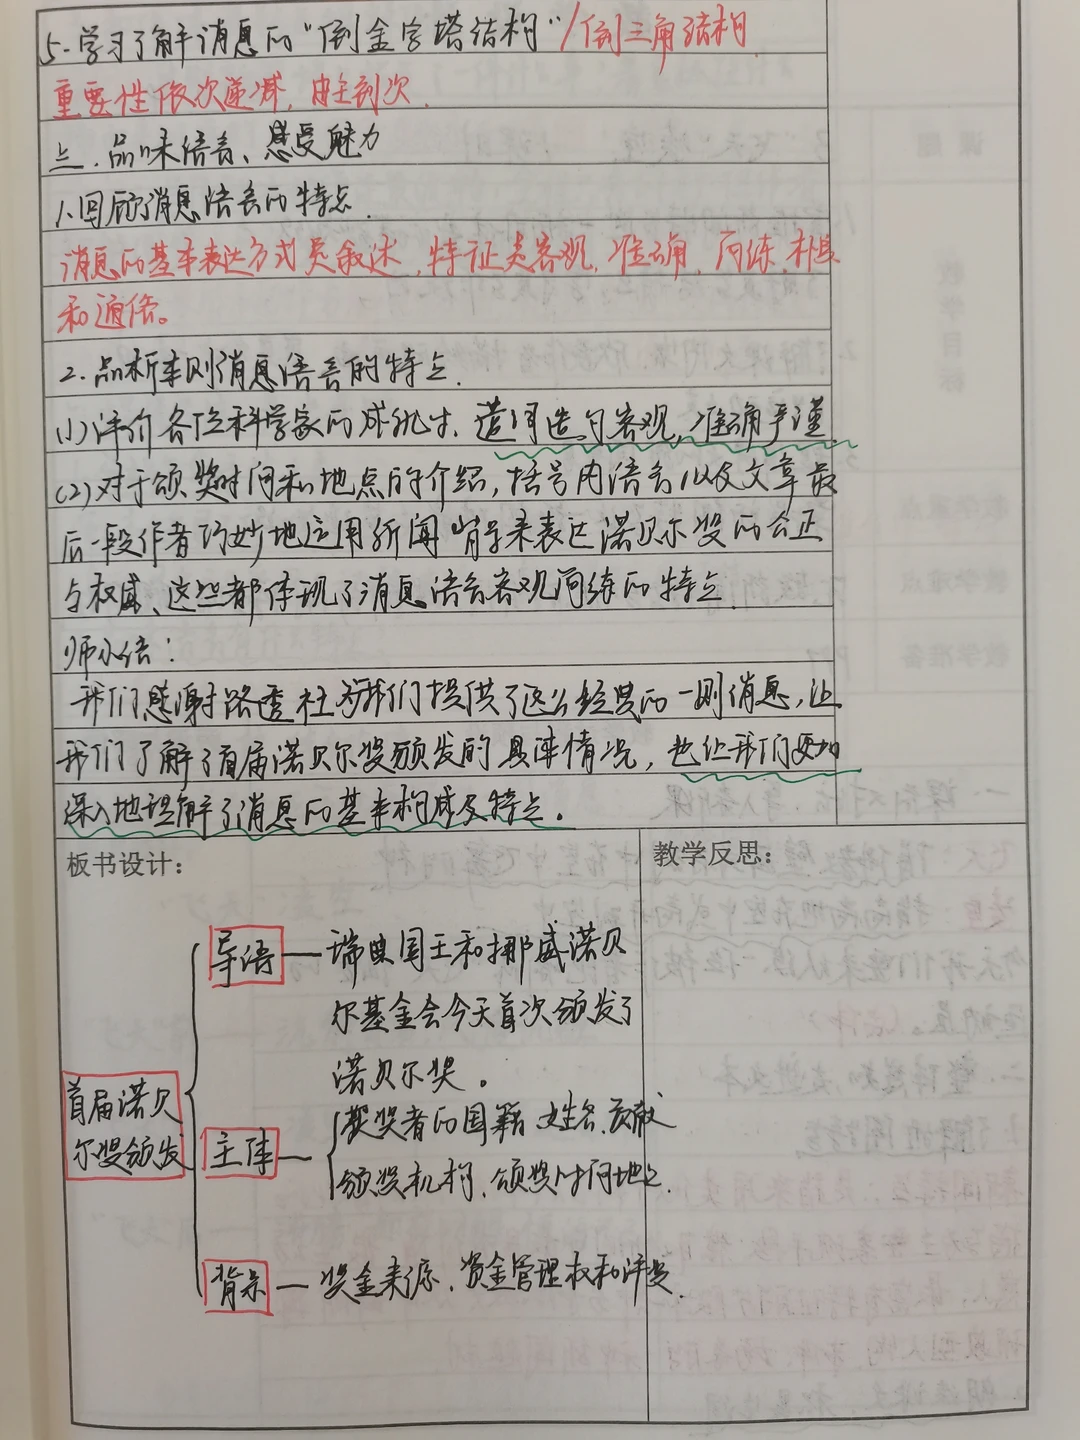 5.学习了解消息的“倒金字塔结构”/倒三角结构
重要性依次递减,由主到次.
三.品味语言、感受魅力
1.回顾消息语言的特点.
消息的基本表达方式是叙述,特征是客观,准确,简练,朴实
和通俗。
2.品析本则消息语言的特点.
(1)评价各位科学家的成就时,遣词造句客观,准确严谨.
(2)对于颁奖时间和地点的介绍,括号内语言以及文章最
后一段作者巧妙地运用新闻背景来表达诺贝尔奖的公正
与权威、这些都体现了消息语言客观简练的特点.
师小结:
我们感谢路透社为我们提供了这么经典的一则消息,让
我们了解了首届诺贝尔奖颁发的具体情况,也让我们更加
深入地理解了消息的基本构成及特点。
板书设计:
首届诺贝
尔奖颁发
导语—瑞典国王和挪威诺贝
尔基金会今天首次颁发了
诺贝尔奖。
主体—
获奖者的国籍 姓名、贡献
颁奖机构、颁奖时间地点.
背景—奖金来源、资金管理权和评选.
教学反思: